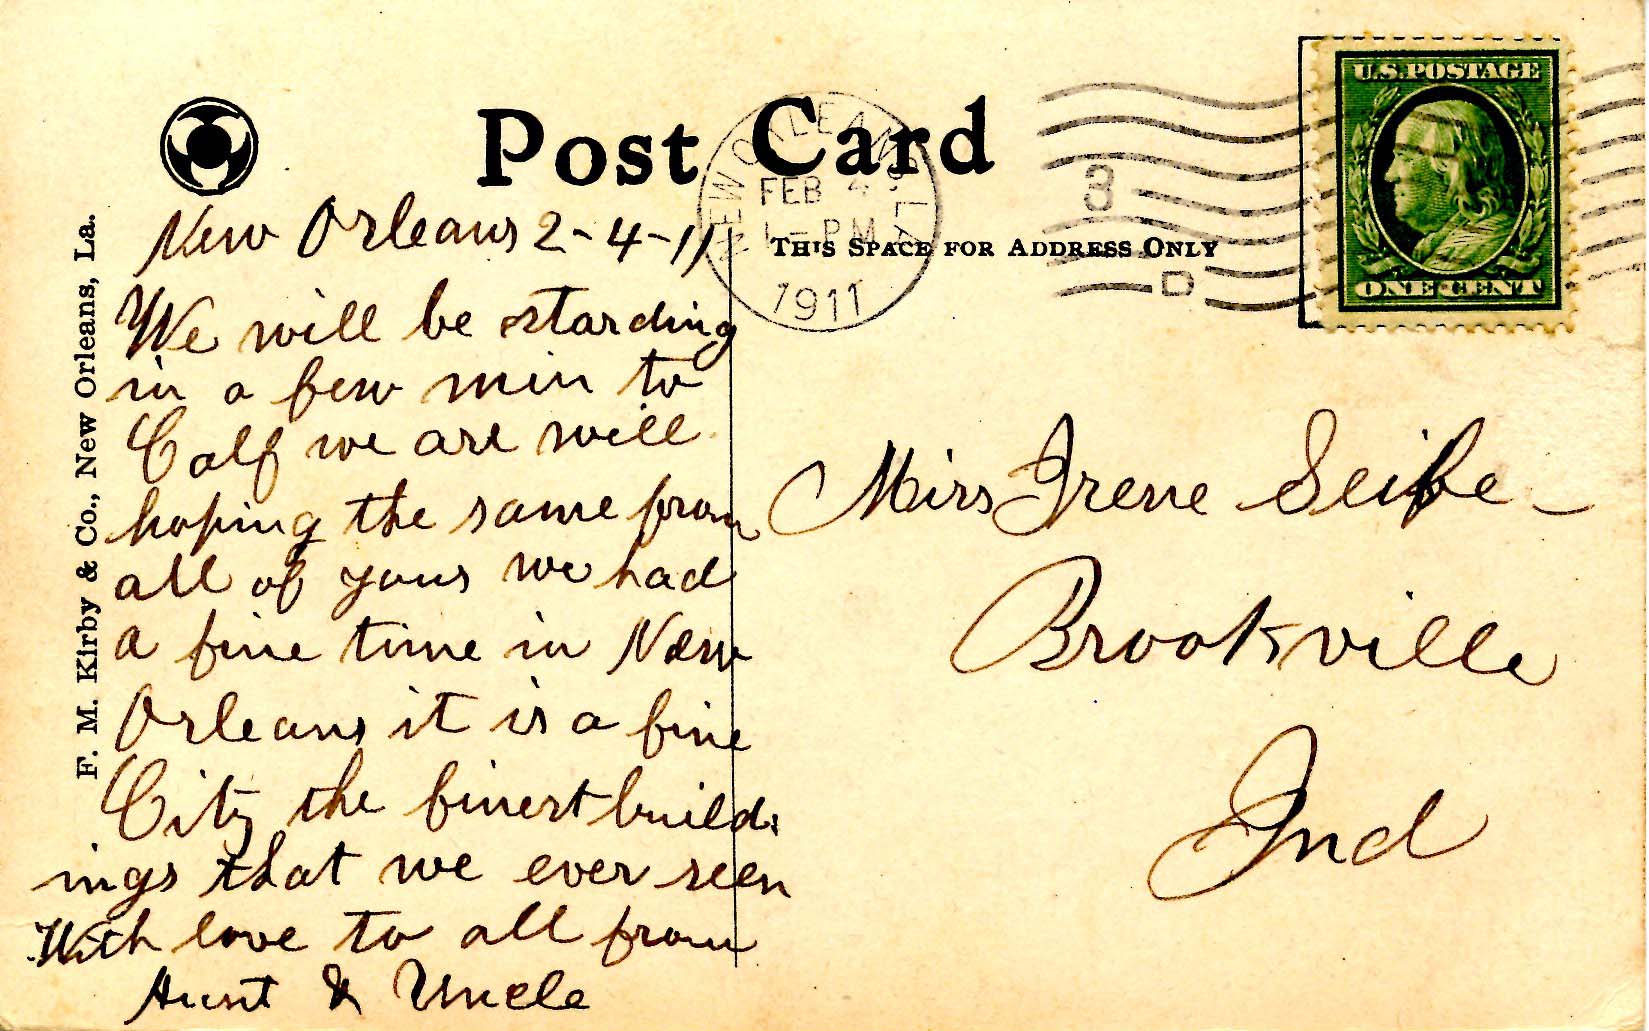 Post Card
NEW ORLEANS, LA
FEB 4
1-PM
1911
3
D
U.S. POSTAGE
ONE CENT
THIS SPACE FOR ADDRESS ONLY
F. M. Kirby & Co., New Orleans, La.
New Orleans 2-4-11
We will be starding
in a few min to
Calf we are will
hoping the same from
all of yous we had
a fine time in New
Orleans it is a fine
City the finest build
ings that we ever seen
With love to all from
Aunt & Uncle
Mirs Irene Seife
Brookville
Ind